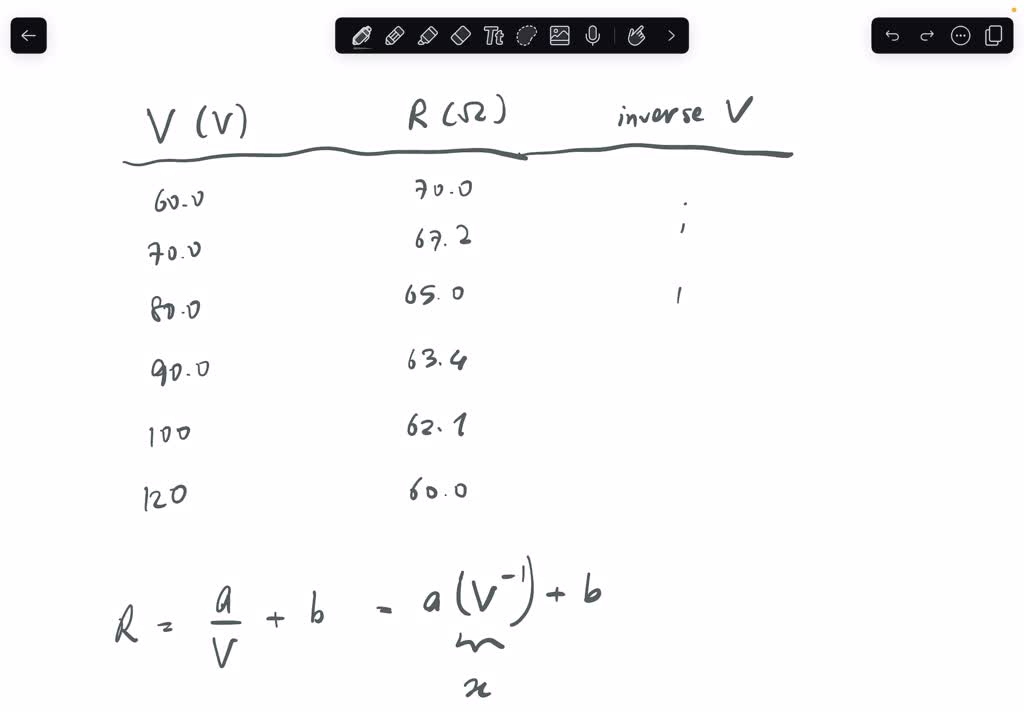 Tt
V (V) R (Ω) inverse V
60.0 70.0
70.0 67.2
80.0 65.0
90.0 63.4
100 62.1
120 60.0
R = a/V + b = a (V⁻¹) + b
x